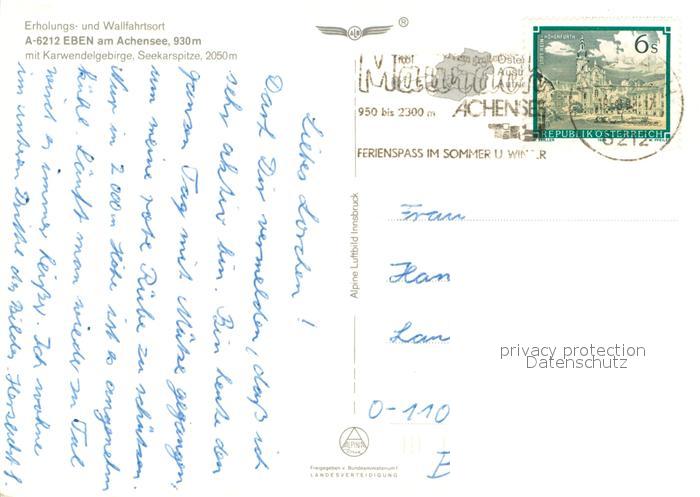 Erholungs- und Wallfahrtsort
A-6212 EBEN am Achensee, 930m
mit Karwendelgebirge, Seekarspitze, 2050m
®
6s
STIFT REIN-HOHENFURTH
REPUBLIK ÖSTERREICH
Tirol
Maurach
950 bis 2300 m
ACHENSEE
FERIENSPASS IM SOMMER U. WINTER
6212
Liebes Lorchen!
Darf Dir vermelden, daß ich
sehr aktiv bin. Bin heute den
ganzen Tag mit Mütze gegangen,
um meine rote Rübe zu schützen.
Hier in 2000 m Höhe ist es angenehm
kühl. Läuft man wieder zu Tal
wird es immer heißer. Ich wohne
im unteren Drittel des Bildes. Herzlichst
Alpine Luftbild Innsbruck
Frau
Han
Lau
0-110
privacy protection
Datenschutz
Freigegeben v. Bundesministerium f.
LANDESVERTEIDIGUNG